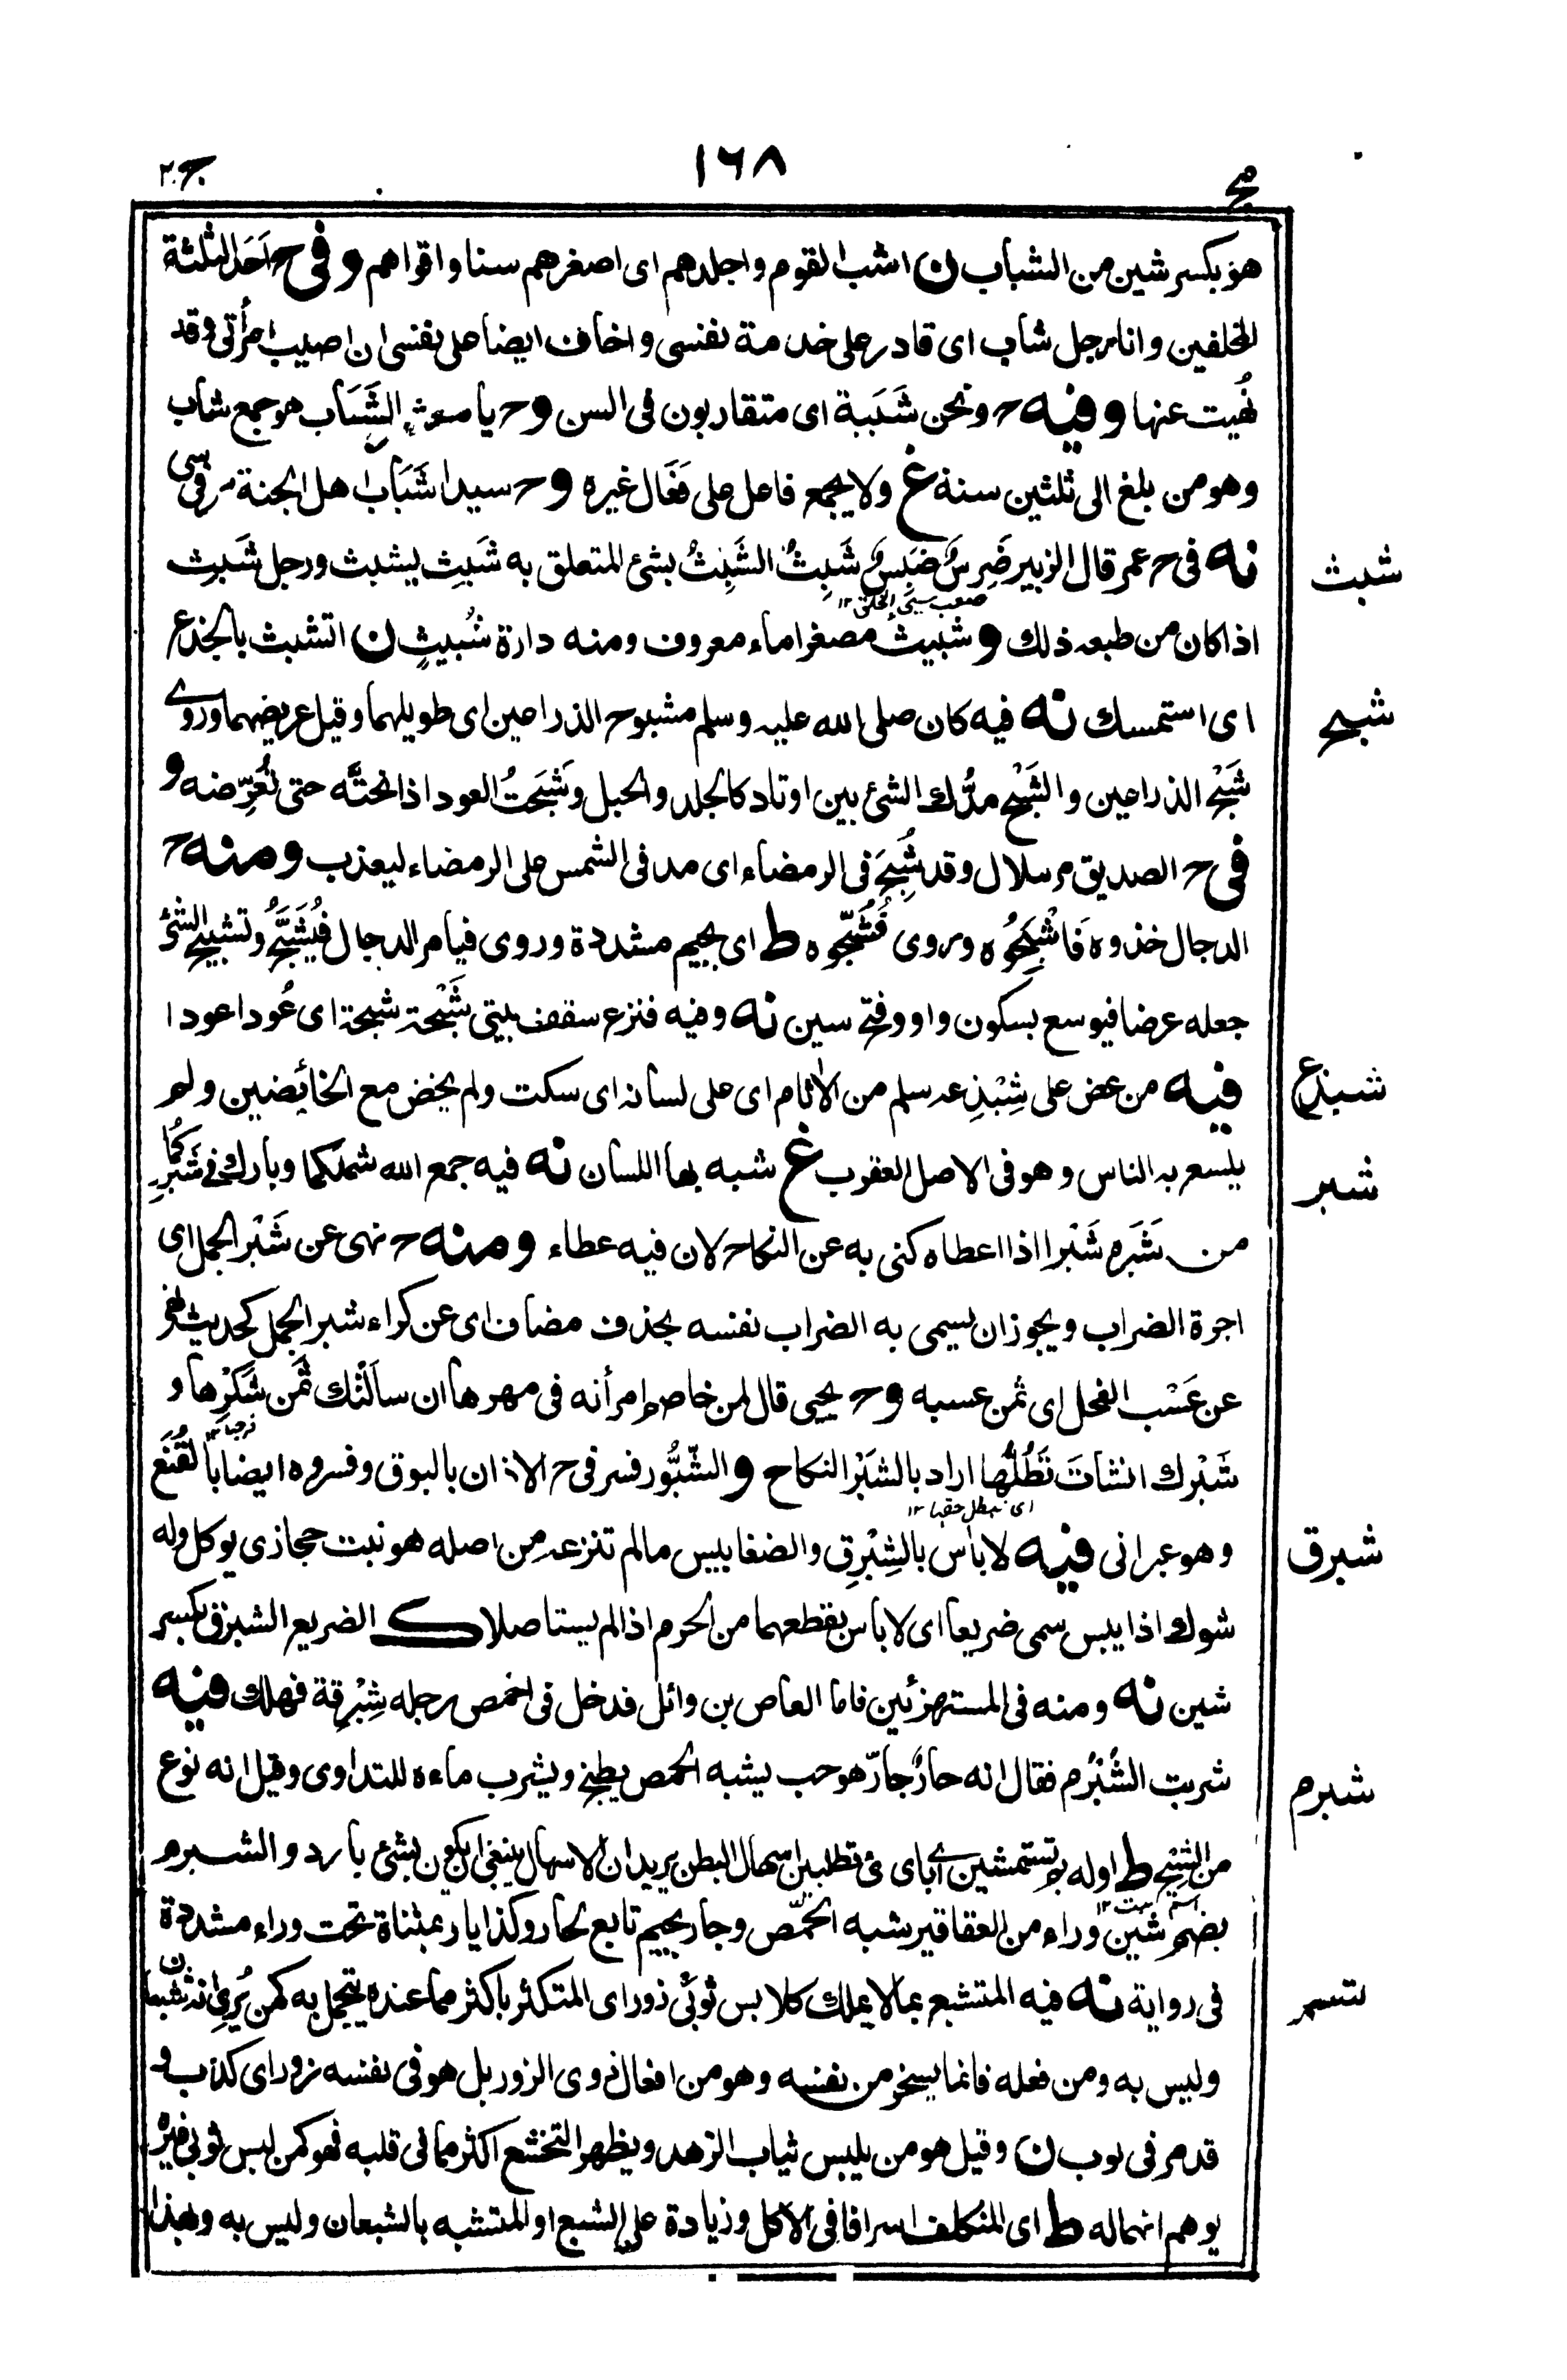 مج
١٦٨
ج٢
هو بكسر شين من الشباب ن اشب القوم واجلدهم اى اصغرهم سنا واقواهم وفى ح احد الثلثة
المخلفين وانا رجل شاب اى قادر على خدمة نفسى واخاف ايضا على نفسى ان اصيب امرأتى وقد
نُهيت عنها وفيه ح ونحن شَبَبة اى متقاربون فى السن وح يا معشر الشَّبَاب هو جمع شاب
وهو من بلغ الى ثلثين سنة غ ولا يجمع فاعل على فَعَال غيره وح سيدا شَبَاب اهل الجنة مر فى سى
شبث
نه فى ح عمر قال الزبير ضَرِسٌ ضَبِسٌ شَبِثٌ الشَّبِثُ بشئ المتعلق به شَبِث يشبث ورجل شَبِث
صعب سيئ الخلق ١٢
اذا كان من طبعه ذلك و شبيث مصغرا ماء معروف ومنه دارة شُبيثٍ ن اتشبث بالجذع
شبح
اى استمسك نه فيه كان صلى الله عليه وسلم مشبوح الذراعين اى طويلهما وقيل عريضهما وروى
شَبْح الذراعين والشَّبْح مدُّك الشئ بين اوتاد كالجلد والحبل وشَبَحتُ العود اذا نحتَّه حتى تُعَرِّضه و
فى ح الصديق مر ببلال وقد شُبِحَ فى الرمضاء اى مد فى الشمس على الرمضاء ليعذب ومنه ح
الدجال خذوه فَاشْبَحُوه وروى فشُجّوه ط اى بجيم مشددة وروى فيامر الدجال فيُشَبَّحُ وتشبيح الشئ
جعله عرضا فيوسع بسكون واو وفتح سين نه وفيه فنزع سقف بيتى شَبْحَة شبحة اى عُودا عودا
شبذع
فيه من عض على شِبْذِعه سلم من الاثام اى على لسانه اى سكت ولم يخض مع الخائضين ولم
شبر
يلسع به الناس وهو فى الاصل العقرب غ شبه بها اللسان نه فيه جمع الله شملكما وبارك فى شَبْرِكُما
من شَبَره شَبْرا اذا اعطاه كنى به عن النكاح لان فيه عطاء ومنه ح نهى عن شَبْر الجمل اى
اجرة الضراب ويجوز ان يسمى به الضراب نفسه بحذف مضاف اى عن كراء شبر الجمل كحديث نهى
عن عَسْب الفحل اى ثمن عسبه وح يحيى قال لمن خاصم امرأته فى مهرها ان سألَتْك ثَمن شَكْرِها و
فرجها ١٢
شَبْرك انشأتَ تَطُلُّها اراد بالشبْر النكاح والشّبُّور فسر فى ح الاذان بالبوق وفسروه ايضا بالقُنْع
اى تبطل حقها ١٢
شبرق
وهو عبرانى فيه لا بأس بالشِبْرِق والضغابيس مالم تنزعه من اصله هو نبت حجازى يوكل وله
شوك اذا يبس سمى ضريعا اى لا بأس بقطعهما من الحرم اذا لم يستاصلا ك الضريع الشبرق بكسر
شين نه ومنه فى المستهزئين فاما العاص بن وائل فدخل فى اخمص رجله شِبْرِقة فهلك فيه
شبرم
شربت الشُبْرُم فقال انه حارٌّ جارّ هو حب يشبه الحمص يطبخ ويشرب ماءه للتداوى وقيل انه نوع
من الشِّيْح ط اوله بم تستمشين اى باى شئ تطلبين اسهال البطن يريد ان الاسهال ينبغى ان يكون بشئ بارد والشبرم
اسم نبت ١٢
بضم شين وراء من العقاقير شبه الحمّص وجار بجيم تابع لحار وكذا يار بمثناة تحت وراء مشددة
شبع
فى رواية نه فيه المتشبع بما لا يملك كلابس ثوبَى زور اى المتكثر باكثر مما عنده يتجمل به كمن يُرِى انه شبعان
وليس به ومن فعله فانما يسخر من نفسه وهو من افعال ذوى الزور بل هو فى نفسه زور اى كذب و
قد مر فى ثوب ن وقيل هو من يلبس ثياب الزهد ويظهر التخشع اكثر مما فى قلبه فهو كمن لبس ثوبى غيره
يوهم انهما له ط اى المتكلف اسرافا فى الاكل وزيادة على الشبع او المتشبه بالشبعان وليس به وبهذا